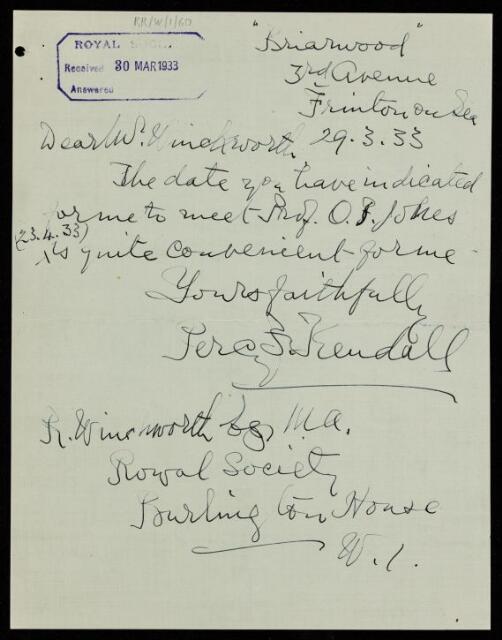 RR/W/1/60
ROYAL SOC.
Received 30 MAR 1933
Answered
"Briarwood"
3rd Avenue
Frinton on Sea
29.3.33
Dear Mr Winckworth,
The date you have indicated
for me to meet Prof. O.T. Jones
(23.4.33)
is quite convenient for me
Yours faithfully
Percy F. Kendall
R. Winckworth Esq, M.A.
Royal Society
Burlington House
W.1.